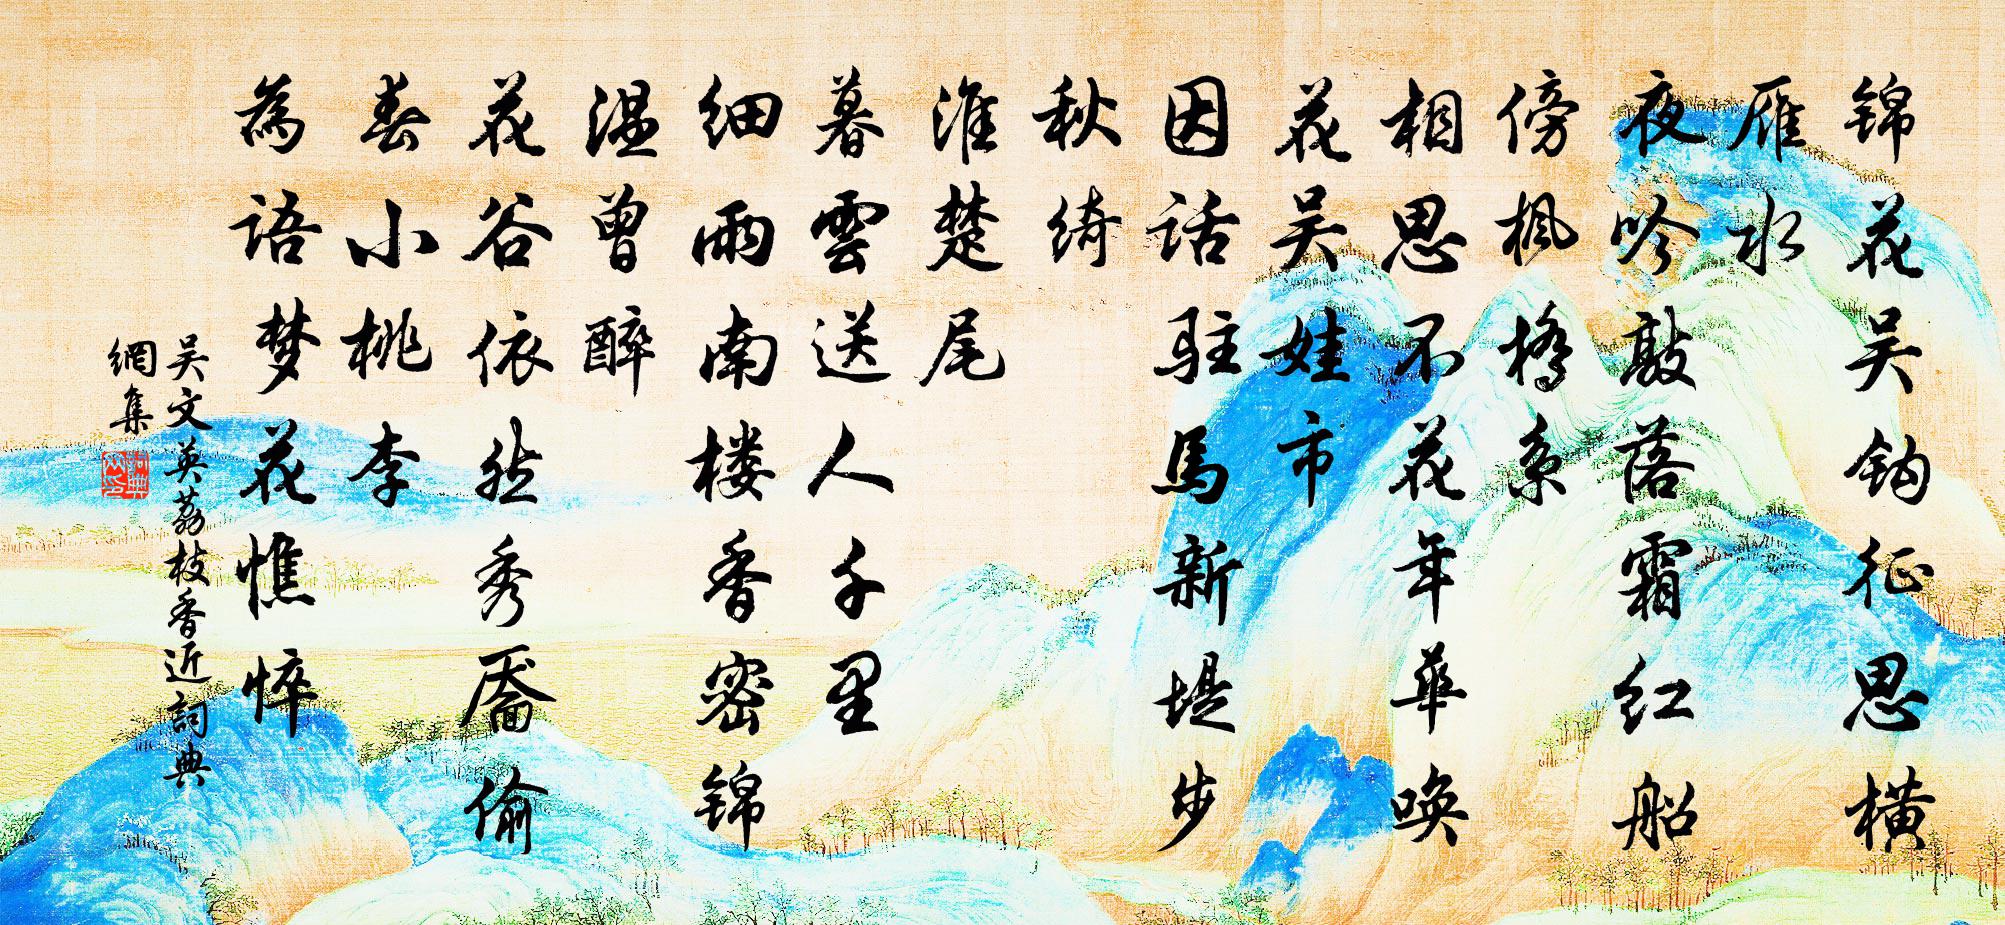 锦花吴钩征思横
雁水
夜吟敲落霜红船
傍枫橋系
相思不花年華唤
花吴娃市
因话驻馬新堤步
秋绮
淮楚尾
暮雲送人千里
细雨南楼香密锦
温曾醉
花谷依然秀靥偷
春小桃李
為语梦花憔悴
吴文英荔枝香近詞典
網集